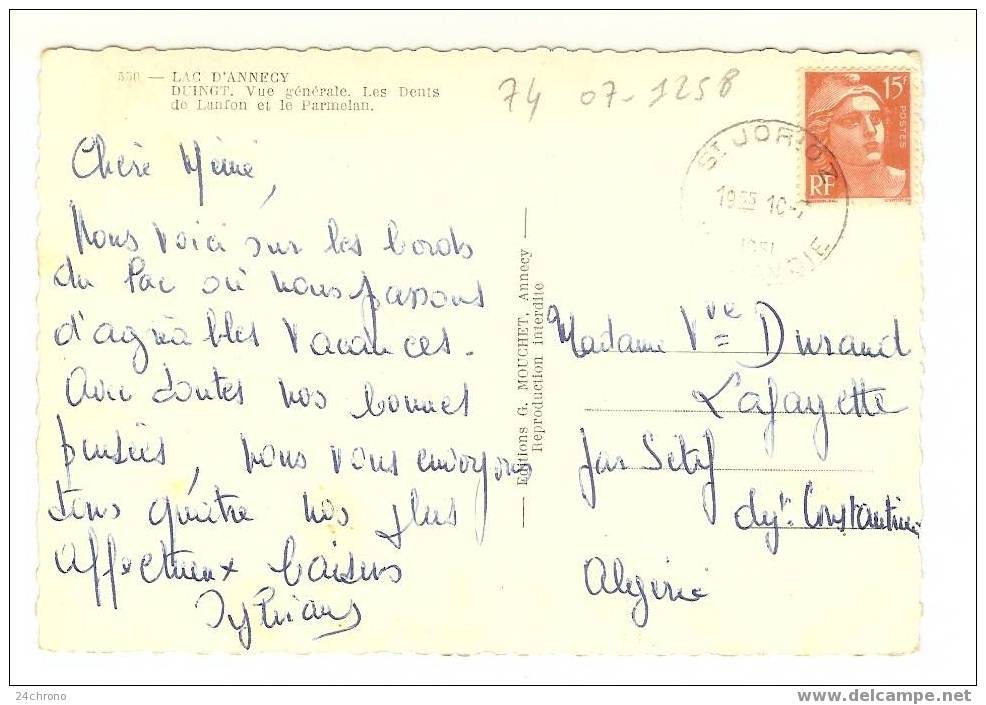 550 — LAC D'ANNECY
DUINGT. Vue générale. Les Dents
de Lanfon et le Parmelan.
74 07-1258
15F
POSTES
RF
ST JORIOZ
1935 10-7
1951
SAVOIE
Chère Mémé,
Nous voici sur les bords
du Lac où nous passons
d'agréables vacances.
Avec toutes nos bonnes
pensées, nous vous envoyons
tous quatre nos plus
affectueux baisers
— Editions G. MOUCHET, Annecy —
Reproduction interdite
Madame Vve Durand
Lafayette
par Sétif
dpt. Constantine
Algérie
24chrono
www.delcampe.net